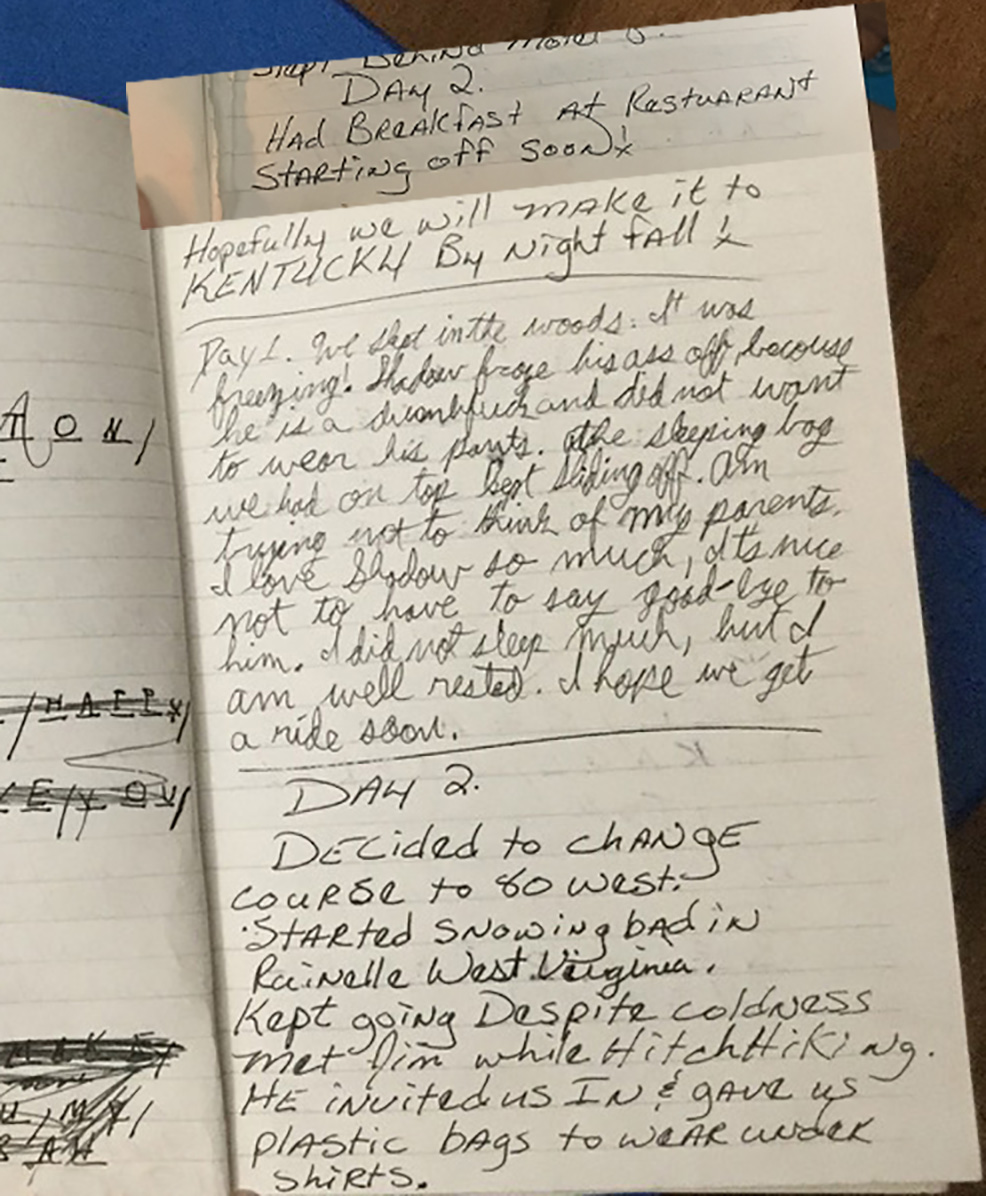 Slept Behind Motel 6.
DAY 2.
HAd BREAKfAst At REstuARANt
StARting off SooN!
Hopefully we will mAKe it to
KENTUCKY By Night fAll!
Day 1. We slept in the woods. It was
freezing! Shadow froze his ass off, becouse
he is a dumbfuck and did not want
to wear his pants. The sleeping bag
we had on top kept sliding off. Am
trying not to think of my parents.
I love Shadow so much, it's nice
not to have to say good-bye to
him. I did not sleep much, but I
am well rested. I hope we get
a ride soon.
DAY 2.
DECided to chANgE
couRse to 60 west.
StARted SNowing bAd iN
RaiNelle West Virginia.
Kept goiNg Despite coldNess
met Jim while HitchHiKiNg.
HE iNvited us IN & gAve us
plAstic bAgs to weAR undeR
shiRts.
A O N /
/ H A P P Y /
E / Y O U /
M Y /